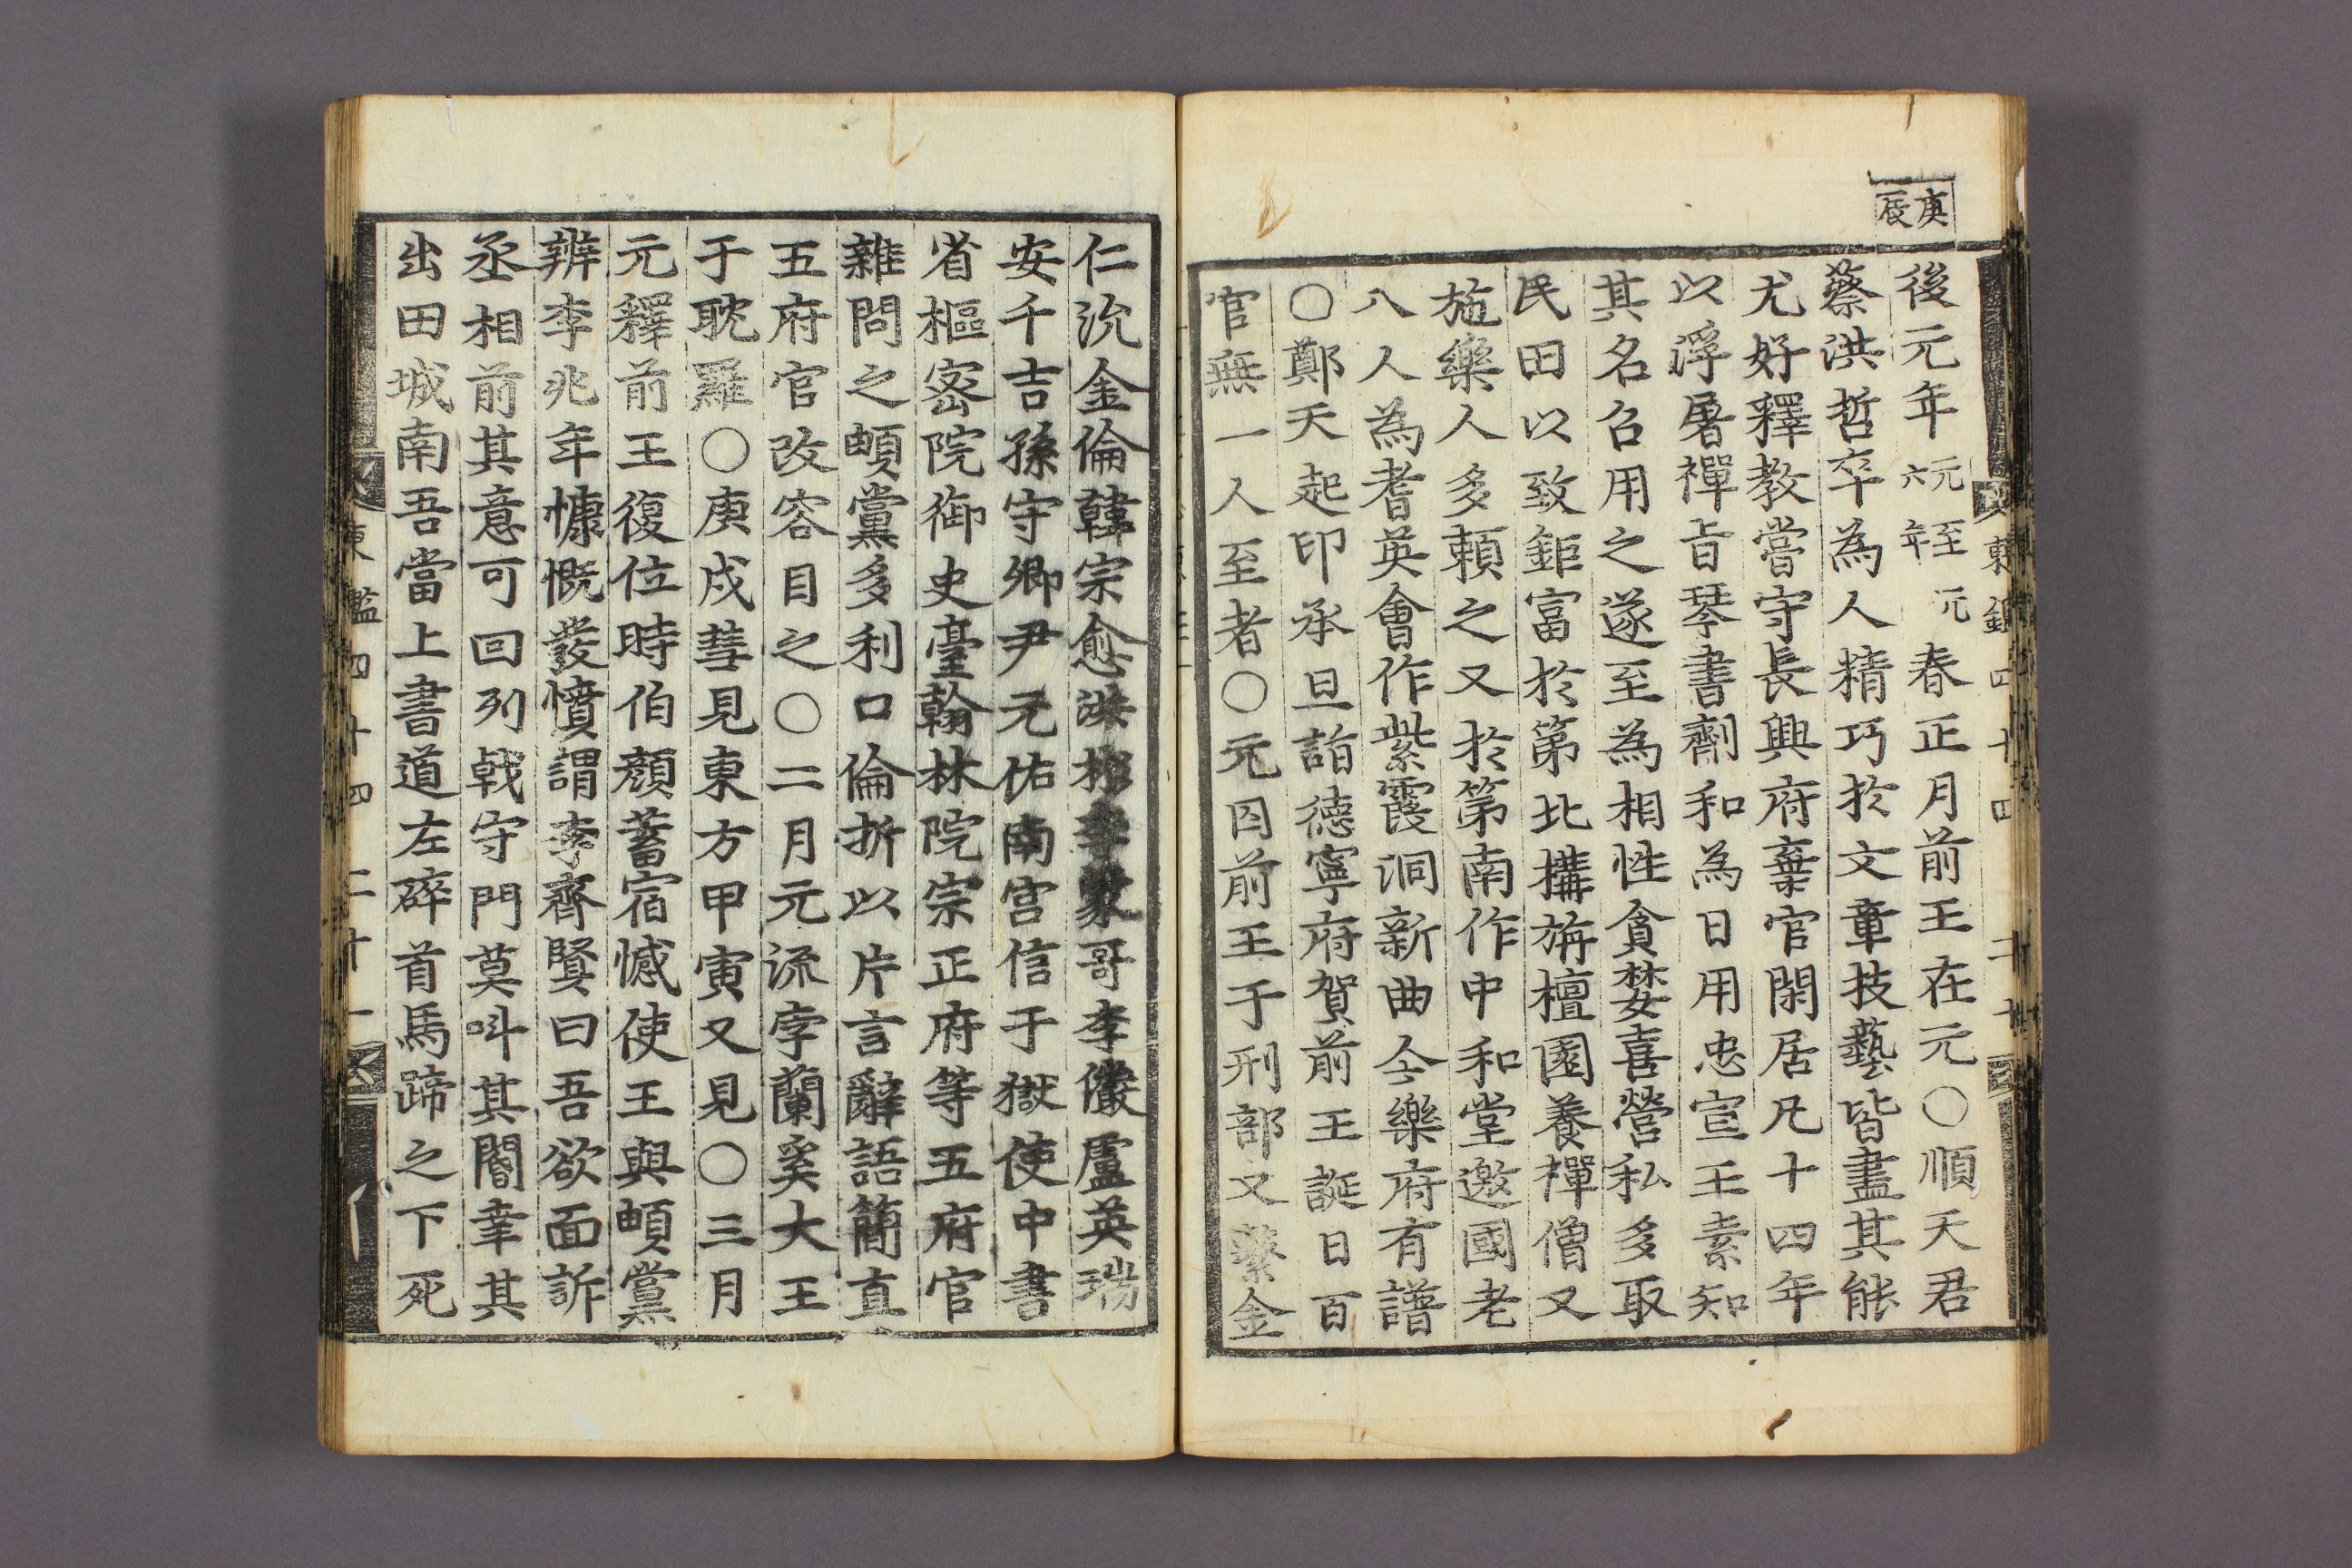 庚辰
後元年元至元六年春正月前王在元○順天君
蔡洪哲卒為人精巧於文章技藝皆盡其能
尤好釋教嘗守長興府棄官閑居凡十四年
以浮屠禪旨琴書劑和為日用忠宣王素知
其名召用之遂至為相性貪婪喜營私多取
民田以致鉅富於第北搆旃檀園養禪僧又
施藥人多賴之又於第南作中和堂邀國老
八人為耆英會作紫霞洞新曲今樂府有譜
○鄭天起印承旦詣德寧府賀前王誕日百
官無一人至者○元囚前王于刑部又繫金
東鑑四十四
二十
仁沇金倫韓宗愈洪彬李蒙哥李儼盧英瑞
安千吉孫守卿尹元佑南宮信于獄使中書
省樞密院御史臺翰林院宗正府等五府官
雜問之頔黨多利口倫折以片言辭語簡直
五府官改容目之○二月元流孛蘭奚大王
于耽羅○庚戌彗見東方甲寅又見○三月
元釋前王復位時伯顏蓄宿憾使王與頔黨
辨李兆年慷慨發憤謂李齊賢曰吾欲面訴
丞相前其意可回列戟守門莫叫其閽幸其
出田城南吾當上書道左碎首馬蹄之下死
東鑑四十四
二十一